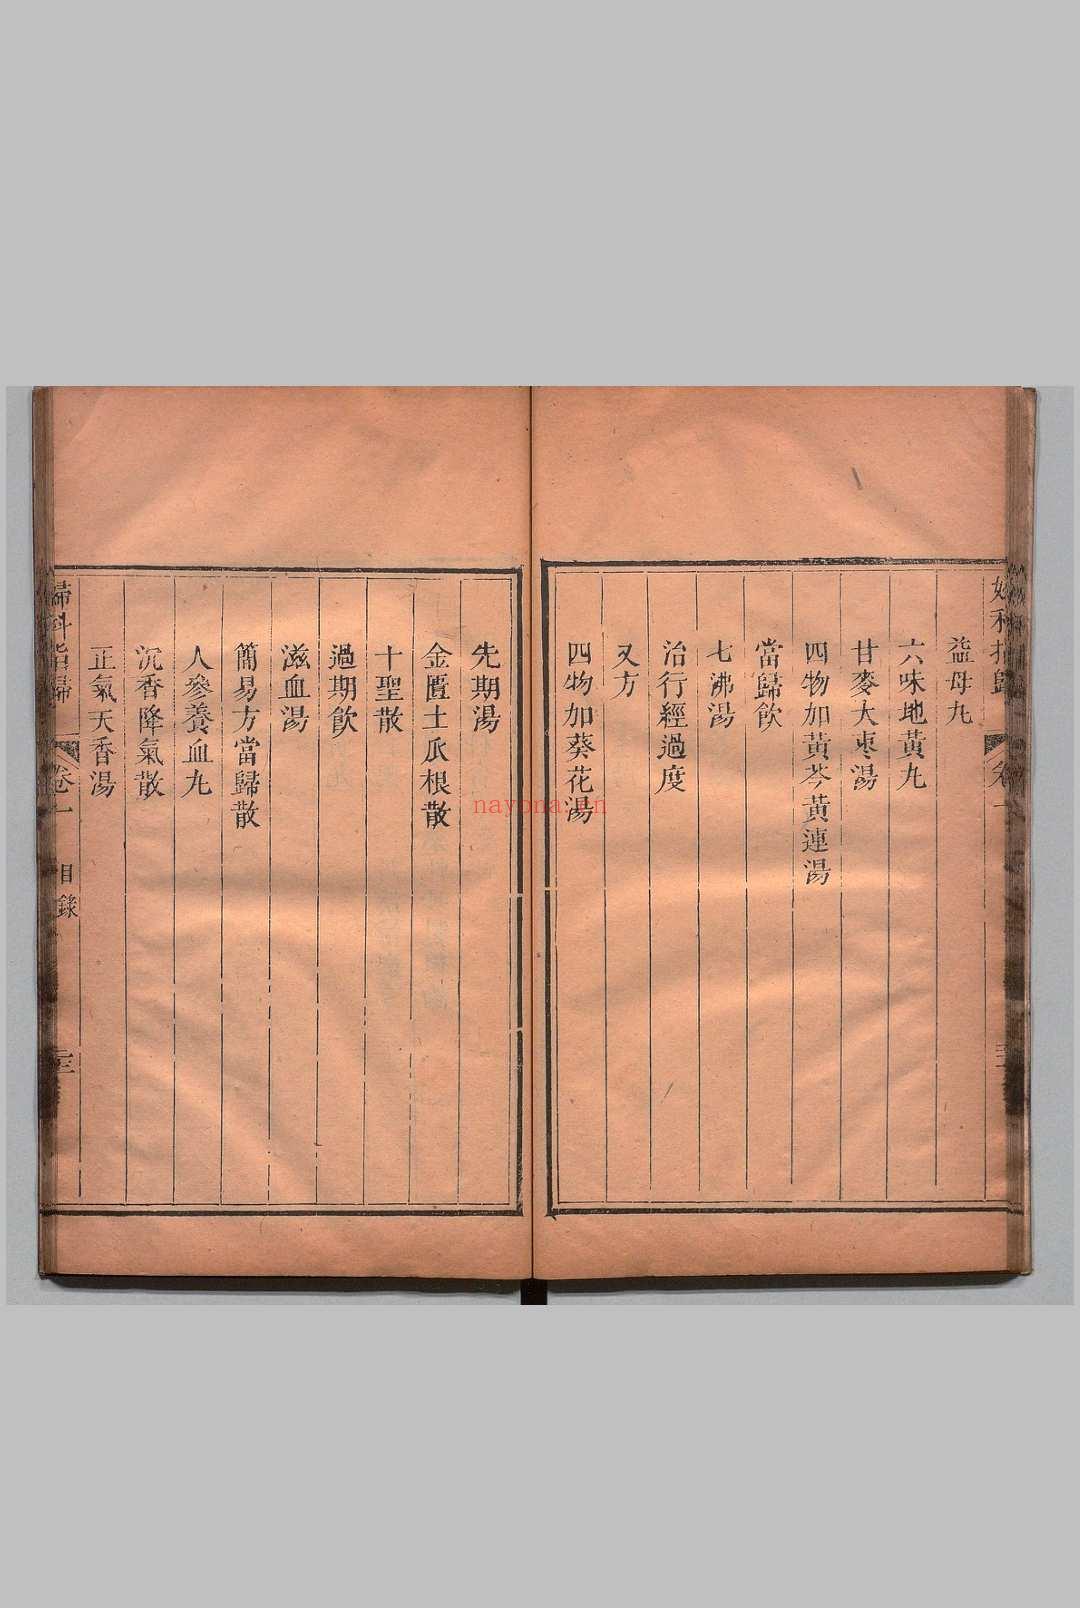 益母丸
六味地黃丸
甘麥大棗湯
四物加黃芩黃連湯
當歸飲
七沸湯
治行經過度
又方
四物加葵花湯
先期湯
金匱土瓜根散
十聖散
過期飲
滋血湯
簡易方當歸散
人參養血丸
沉香降氣散
正氣天香湯
婦科指歸
卷一
目錄
nayona.cn